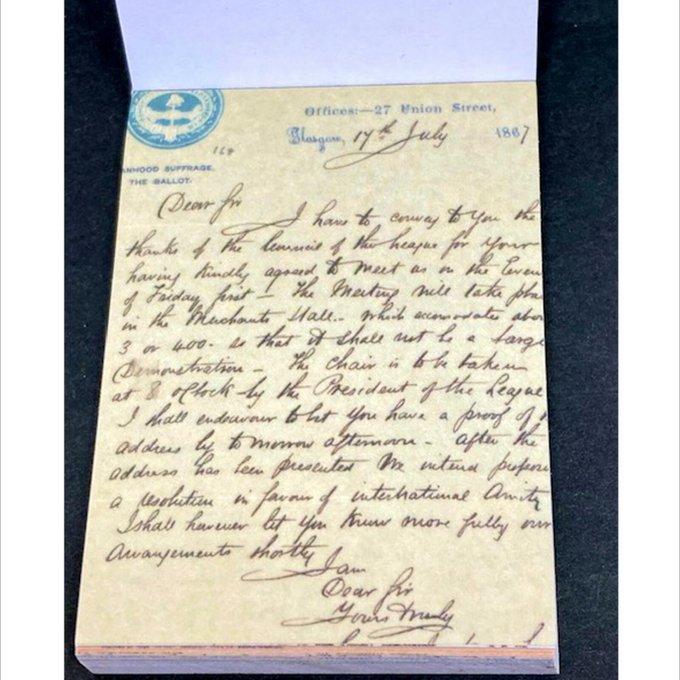 Offices:—27 Union Street,
Glasgow, 17th July 1867
168
ANHOOD SUFFRAGE.
THE BALLOT.
Dear Sir
I have to convey to you the
thanks of the Council of the League for your
having kindly agreed to meet us on the Even
of Friday first – The Meeting will take pla
in the Merchants Hall – which accomodates abo
3 or 400 – so that it shall not be a large
Demonstration – The Chair is to be taken
at 8 oClock by the President of the League
I shall endeavour to let you have a proof of
address by tomorrow afternoon – after the
address has been presented We intend propos
a resolution in favour of international Amity
I shall however let you know more fully our
arrangements shortly
I am
Dear Sir
Yours truly